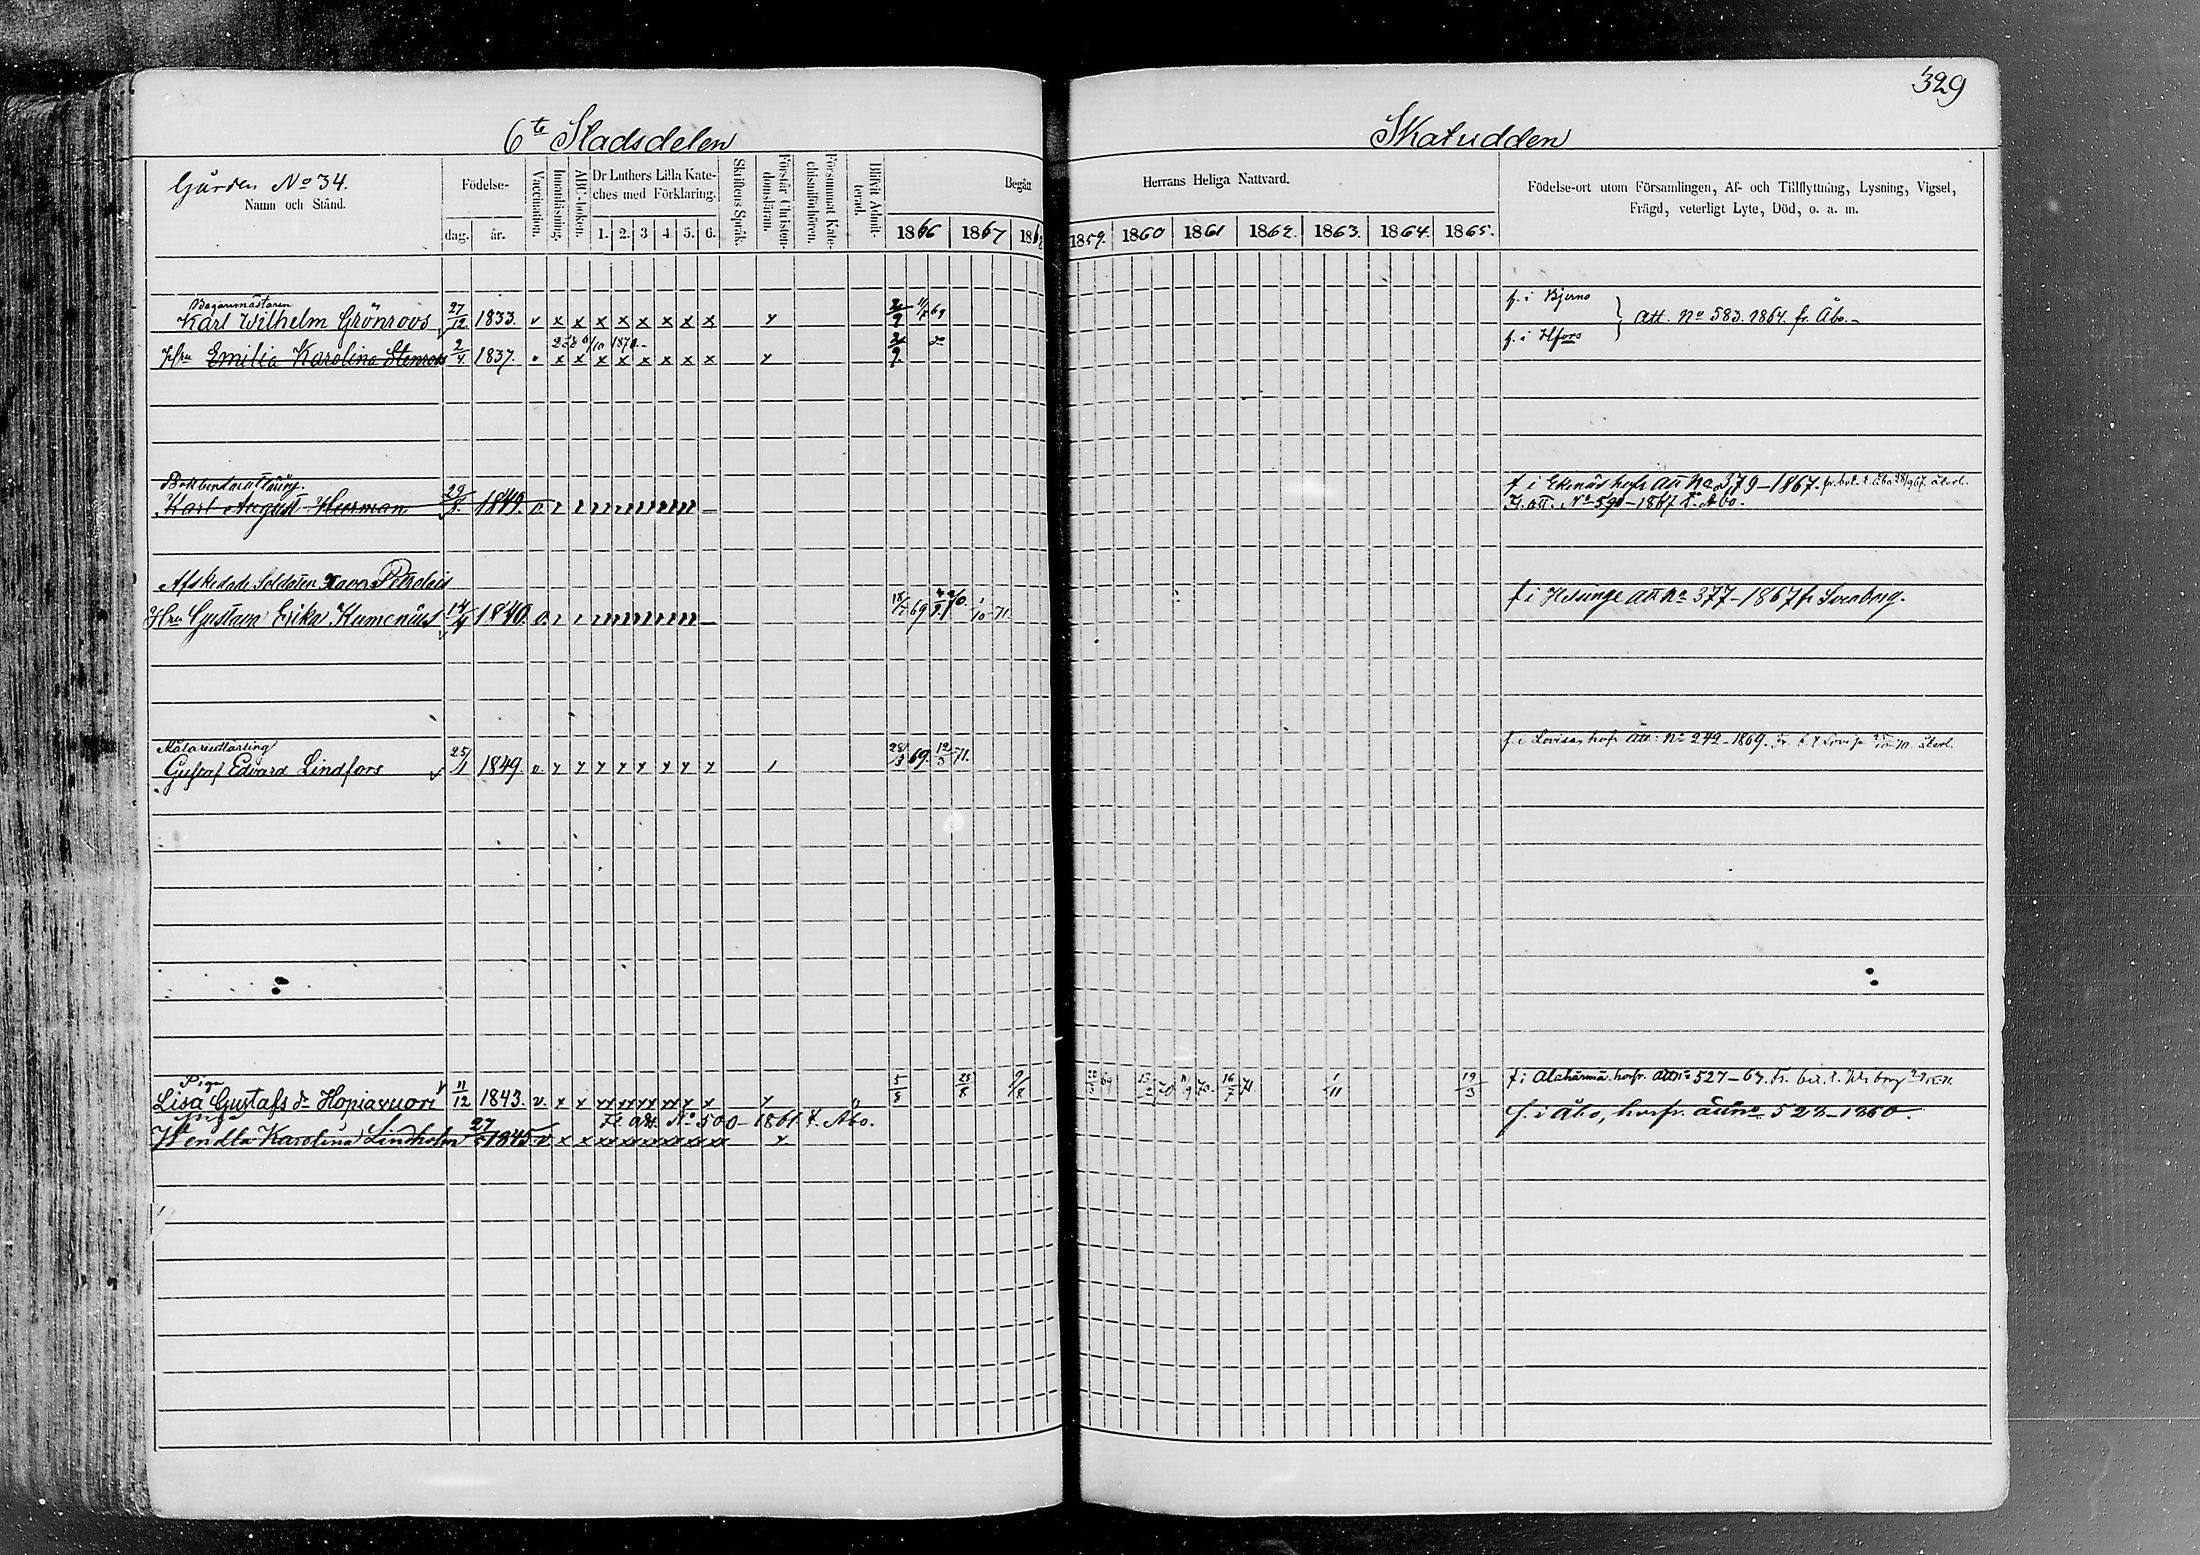 329
6te Stadsdelen
Skatudden
Gården No 34.
Namn och Stånd.
Födelse-
dag.
år.
Vaccination.
Innanläsning.
ABC-boken.
Dr Luthers Lilla Kate-
ches med Förklaring.
1. 2. 3 4 5. 6.
Skriftens Språk.
Förstår Christen-
domsläran.
Försummat Kate-
chismiförhören.
Blifvit Admit-
terad.
Begått
Herrans Heliga Nattvard.
1866 1867 186
1859. 1860 1861 1862. 1863. 1864. 1865.
Födelse-ort utom Församlingen, Af- och Tillflyttning, Lysning, Vigsel,
Frägd, veterligt Lyte, Död, o. a. m.
Bagaremästaren
Karl Wilhelm Grönroos 27/12 1833. v x x x x x x x x x
f. i Bjerno
att. No 583. 1864. fr. Åbo.
Hru Emilia Karolina Stenroos 2/4 1837. x x x x x x x x x
f. i Hfors
Karl August Herman 29/8 1849.
f i Ekenäs hvfr att No 379-1867.
Fl. att. No 590-1867 t. Åbo.
Afskedade Soldaten
Hru Gustava Erika Kumenius 14/4 1840. 69 70 71.
f i Helsinge att No 377-1867 fr Sveaborg.
Målarelärling
Gustaf Edvard Lindfors 25/1 1849. 69. 12/5 71.
f i Lovisa, hvfr att: No 242-1869.
Piga
Lisa Gustafs dr Hopiavuori 11/12 1843. v. x x 5/8 25/8 9/8 16/7 71. 1/11 19/3
f i Alahärmä, hvfr. att No 527-67.
Fl att. No 500-1861 t. Åbo.
Piga
Wendla Karolina Lindholm 27 1845.
f. i Åbo, hvfr. att no 528-1860.